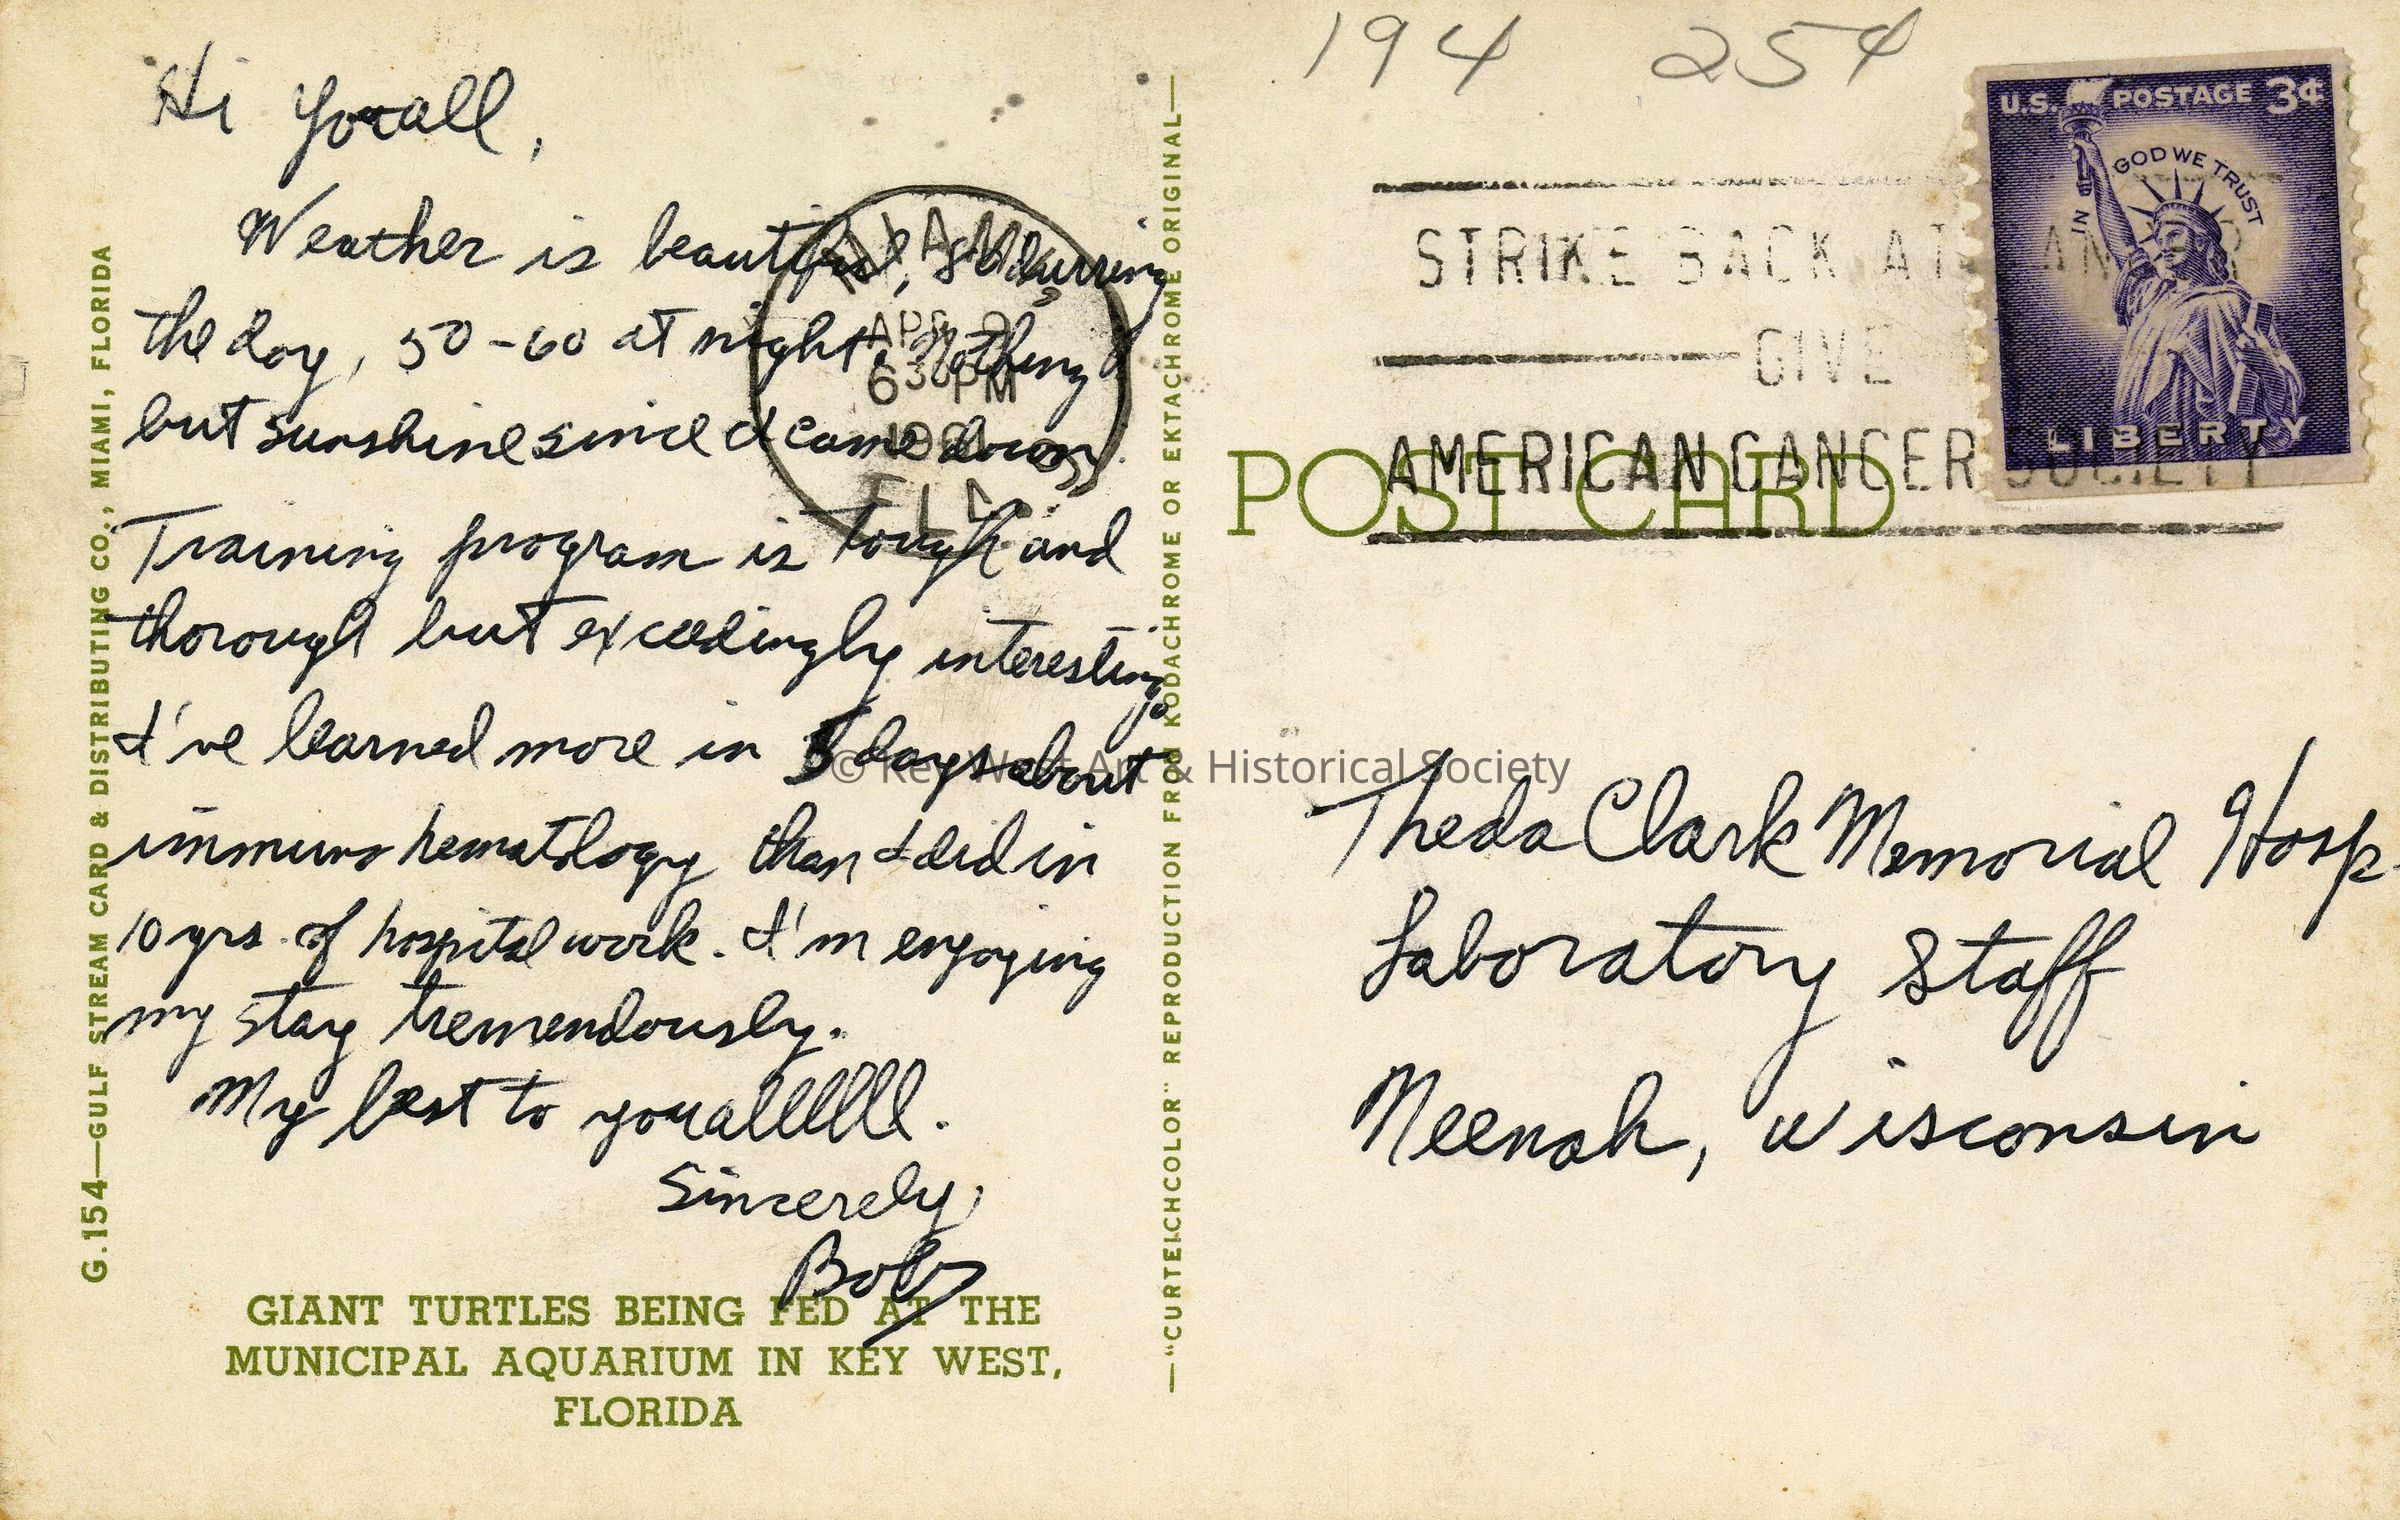 Hi youall,
Weather is beautiful, 80 durring
the day, 50-60 at night. Nothing
but sunshine since I came down.
Training program is tough and
thorough but exceedingly interesting.
I've learned more in 3 days about
immuno hematology than I did in
10 yrs. of hospital work. I'm engoying
my stay tremendously.
My best to youallllllll.
Sincerely,
Bob
GIANT TURTLES BEING FED AT THE
MUNICIPAL AQUARIUM IN KEY WEST,
FLORIDA
G.154—GULF STREAM CARD & DISTRIBUTING CO., MIAMI, FLORIDA
—"CURTEICHCOLOR" REPRODUCTION FROM KODACHROME OR EKTACHROME ORIGINAL—
MIAMI
APR
6 30 PM
FLA.
194 25¢
U.S. POSTAGE 3¢
IN GOD WE TRUST
LIBERTY
STRIKE BACK AT CANCER
GIVE
AMERICAN CANCER SOCIETY
POST CARD
© Key West Art & Historical Society
Theda Clark Memorial Hosp.
Laboratory Staff
Neenah, Wisconsin